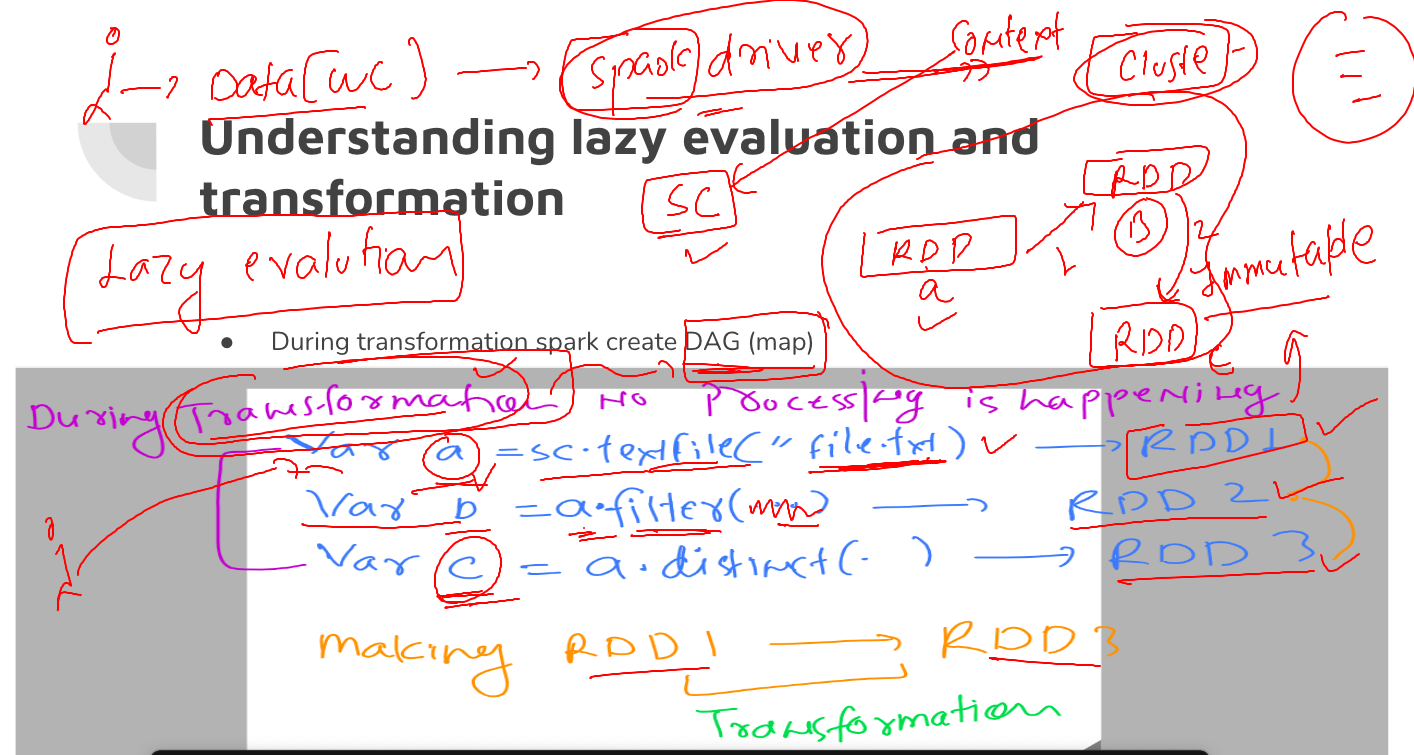 Data(WC) Spark driver Context Cluste
Understanding lazy evaluation and
transformation
SC
RDD
B
RDD
a
1
2
Immutable
RDD
Lazy evalution
• During transformation spark create DAG (map)
During Transformation No Processing is happening
Var a = sc.textfile("file.txt) → RDD 1
Var b = a.filter( ) → RDD 2
Var c = a.distinct(- ) → RDD 3
making RDD 1 → RDD 3
Transformation